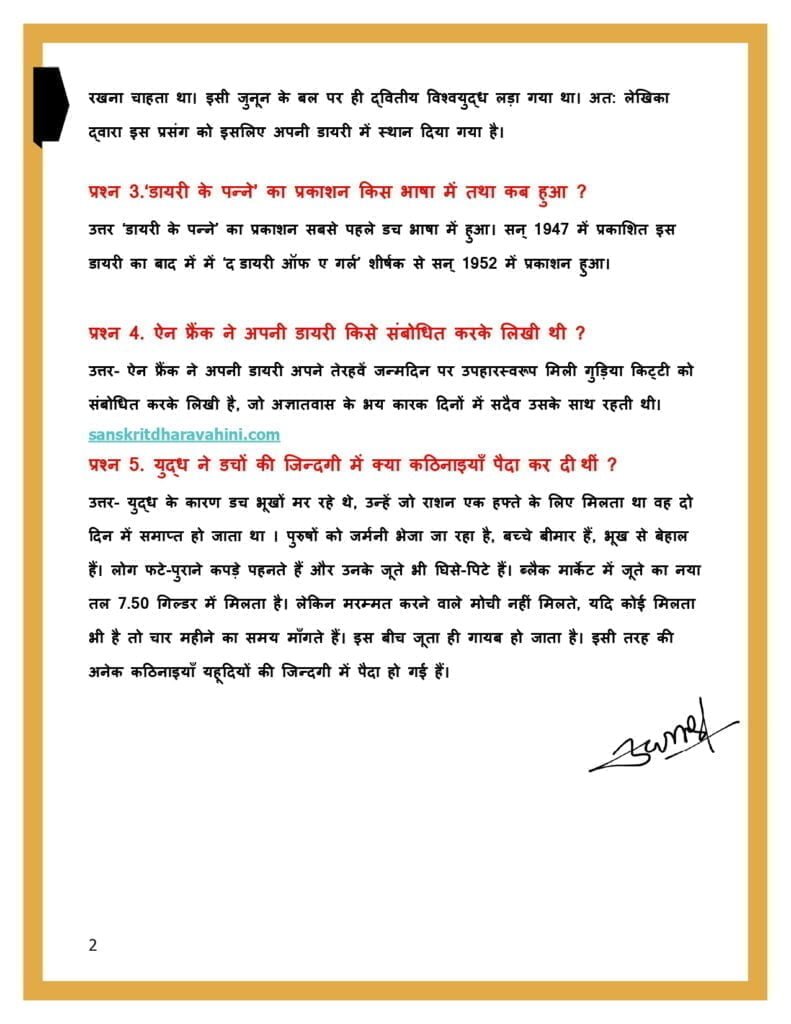 रखना चाहता था। इसी जुनून के बल पर ही द्वितीय विश्वयुद्ध लड़ा गया था। अत: लेखिका
द्वारा इस प्रसंग को इसलिए अपनी डायरी में स्थान दिया गया है।
प्रश्न 3.‘डायरी के पन्ने’ का प्रकाशन किस भाषा में तथा कब हुआ ?
उत्तर ‘डायरी के पन्ने’ का प्रकाशन सबसे पहले डच भाषा में हुआ। सन् 1947 में प्रकाशित इस
डायरी का बाद में में ‘द डायरी ऑफ ए गर्ल’ शीर्षक से सन् 1952 में प्रकाशन हुआ।
प्रश्न 4. ऐन फ्रैंक ने अपनी डायरी किसे संबोधित करके लिखी थी ?
उत्तर- ऐन फ्रैंक ने अपनी डायरी अपने तेरहवें जन्मदिन पर उपहारस्वरूप मिली गुड़िया किट्टी को
संबोधित करके लिखी है, जो अज्ञातवास के भय कारक दिनों में सदैव उसके साथ रहती थी।
sanskritdharavahini.com
प्रश्न 5. युद्ध ने डचों की जिन्दगी में क्या कठिनाइयाँ पैदा कर दी थीं ?
उत्तर- युद्ध के कारण डच भूखों मर रहे थे, उन्हें जो राशन एक हफ्ते के लिए मिलता था वह दो
दिन में समाप्त हो जाता था । पुरुषों को जर्मनी भेजा जा रहा है, बच्चे बीमार हैं, भूख से बेहाल
हैं। लोग फटे-पुराने कपड़े पहनते हैं और उनके जूते भी घिसे-पिटे हैं। ब्लैक मार्केट में जूते का नया
तल 7.50 गिल्डर में मिलता है। लेकिन मरम्मत करने वाले मोची नहीं मिलते, यदि कोई मिलता
भी है तो चार महीने का समय माँगते हैं। इस बीच जूता ही गायब हो जाता है। इसी तरह की
अनेक कठिनाइयाँ यहूदियों की जिन्दगी में पैदा हो गई हैं।
2